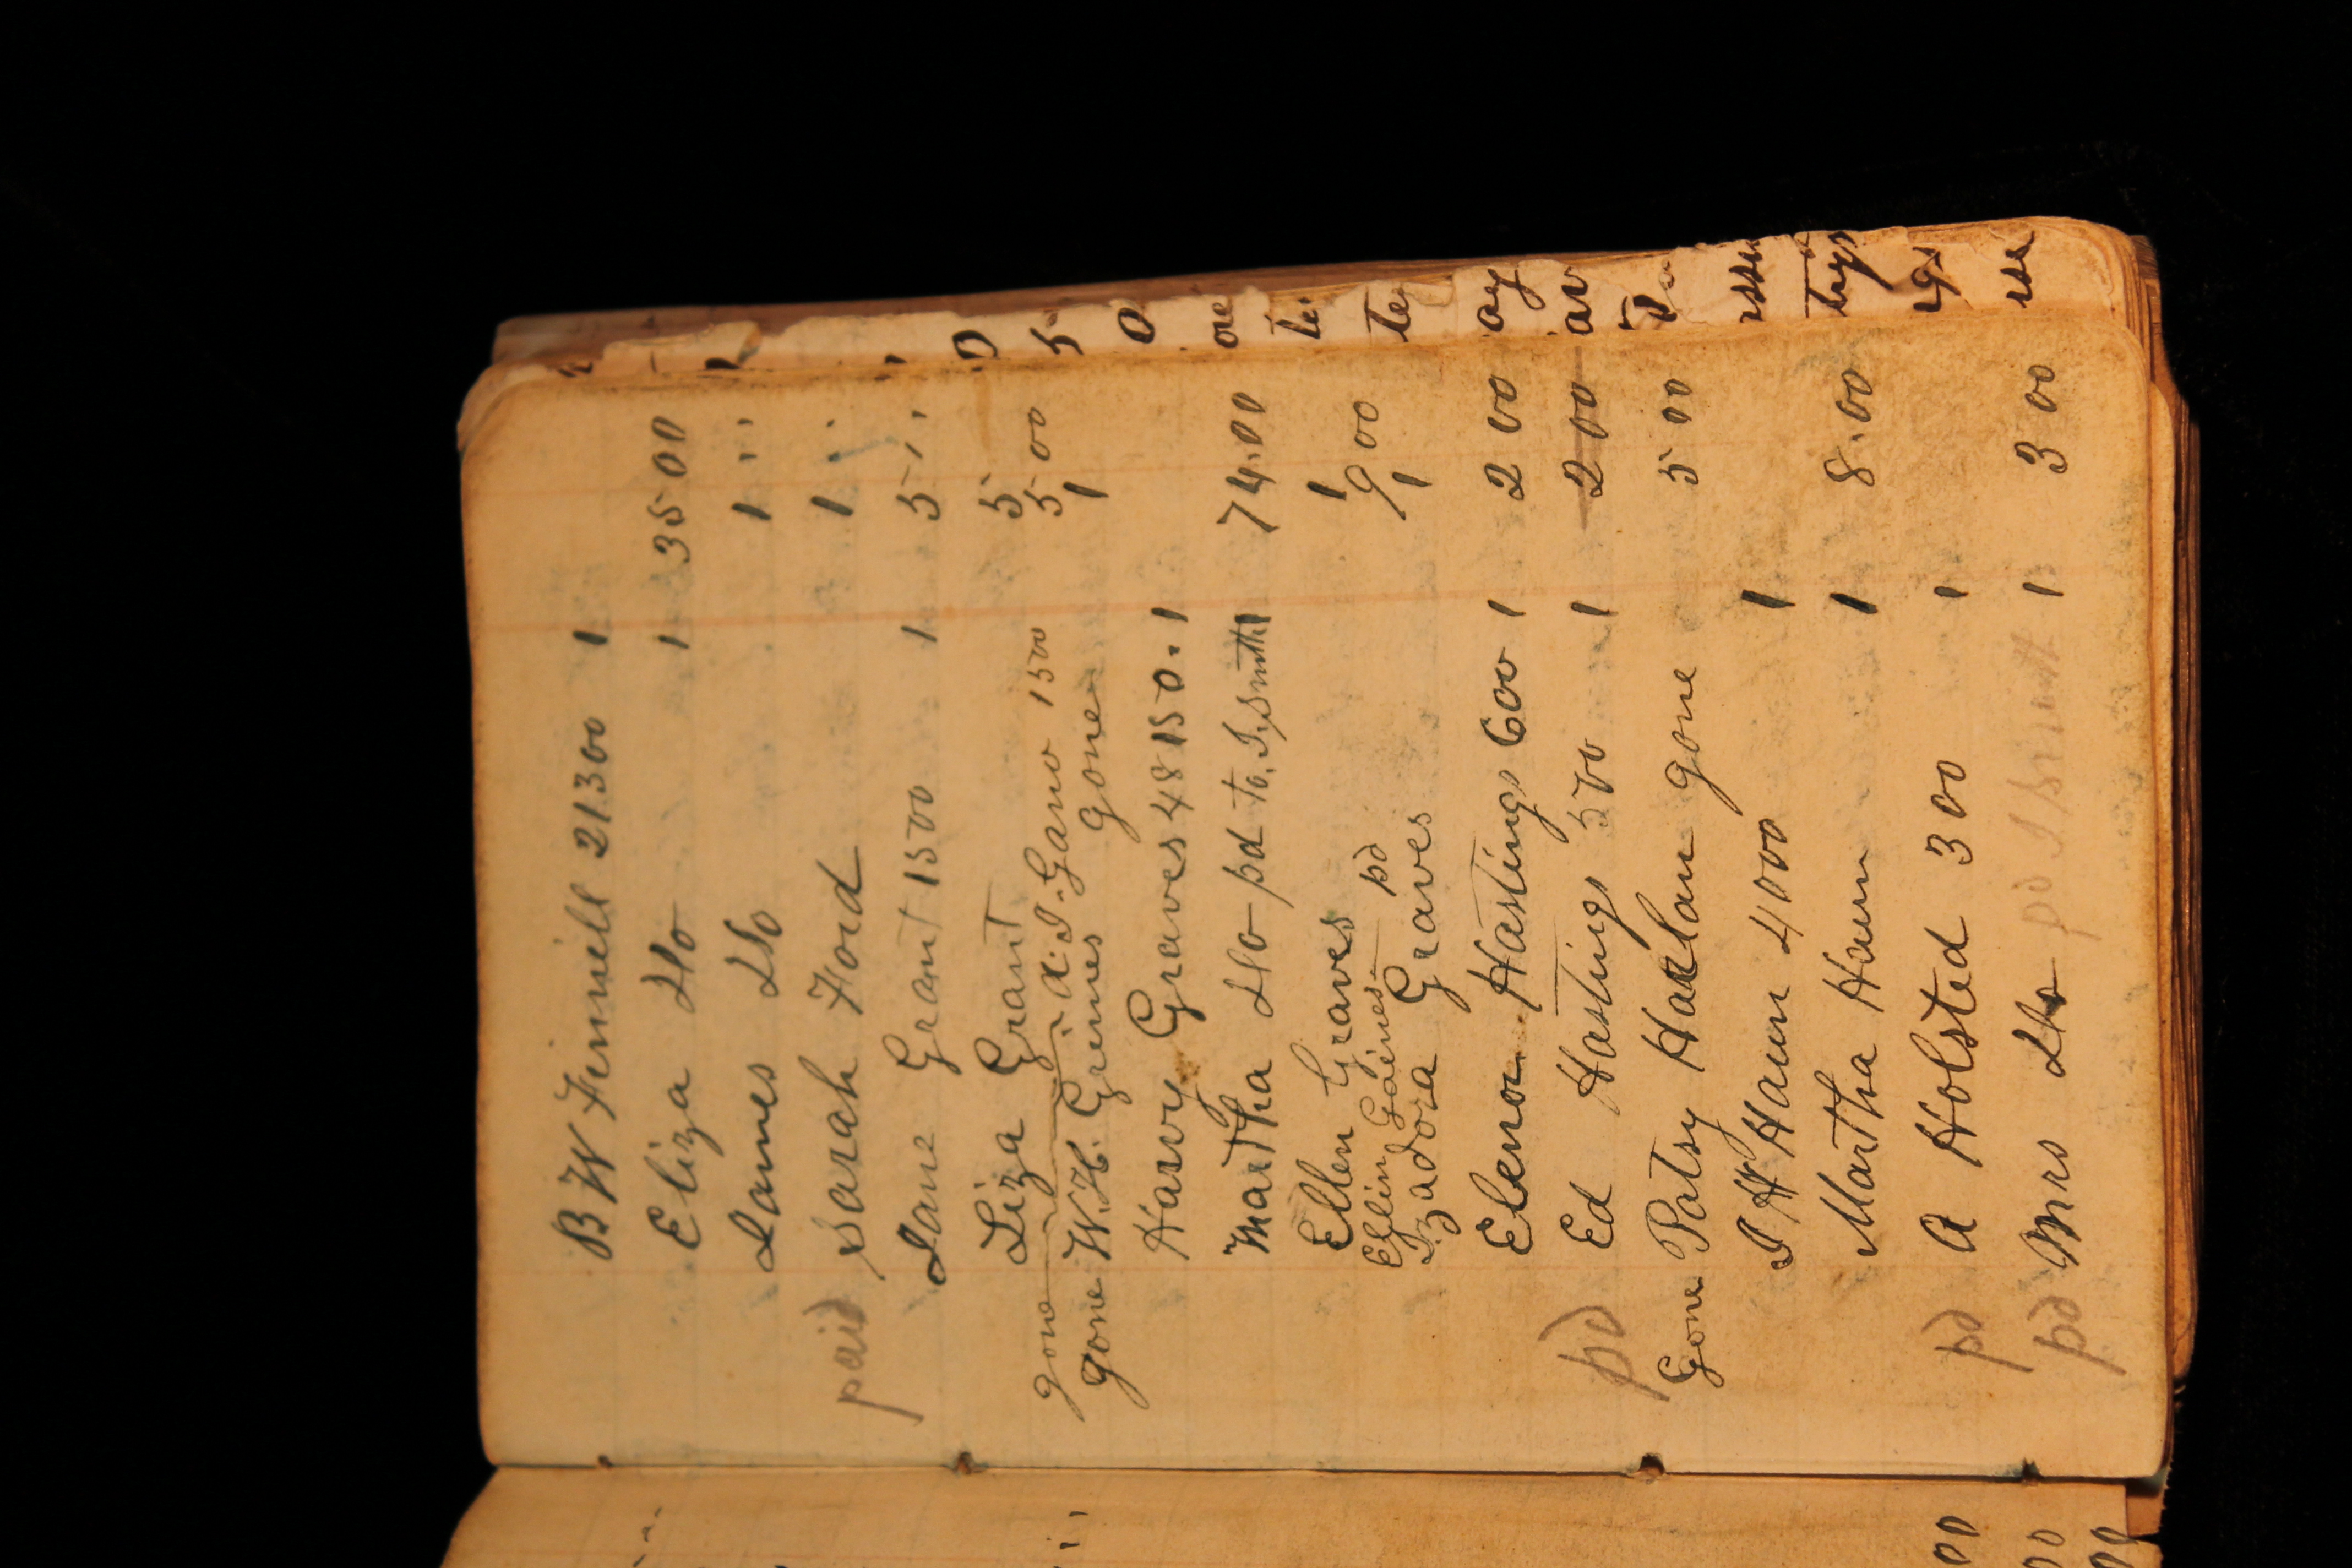 B W Finnell 21300 1
Eliza Do 1 35 00
James Do 1 " "
paid Sarah Ford 1 " "
Jane Grant 1500 1 5 " "
Liza Grant 5
gone A. J. Gano 1500 5 00
gone W. H. Grimes gone 1
Harvy Graves 48150. 1
Martha Do pd to. J. Smith 1 74.00
Ellen Graves 1
Efflin Gaines pd 9 00
Izadora Graves 1
Elenor Hastings 600 1 2 00
pd Ed Hastings 500 1 2 00
Gone Patsy Harlan gone 5 00
J H Haun 4000 1
Martha Haun 1 8.00
pd A Holsted 300 1
pd Mrs Do pd J 1 3 00